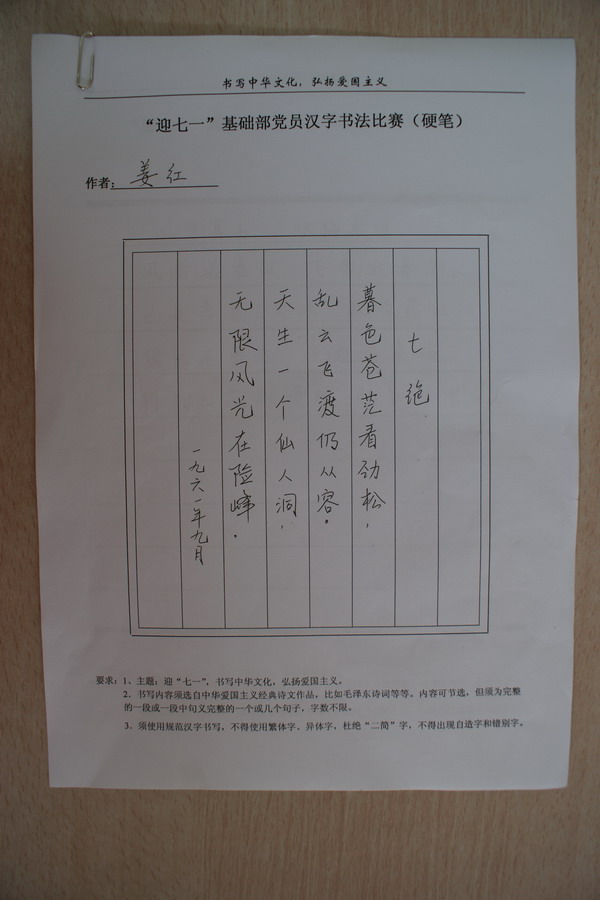 书写中华文化，弘扬爱国主义
“迎七一”基础部党员汉字书法比赛（硬笔）
作者：姜红
七绝
暮色苍茫看劲松，
乱云飞渡仍从容。
天生一个仙人洞，
无限风光在险峰。
一九六一年九月
要求：1、主题：迎“七一”，书写中华文化，弘扬爱国主义。
2、书写内容须选自中华爱国主义经典诗文作品，比如毛泽东诗词等等。内容可节选，但须为完整
的一段或一段中句义完整的一个或几个句子，字数不限。
3、须使用规范汉字书写，不得使用繁体字、异体字，杜绝“二简”字，不得出现自造字和错别字。